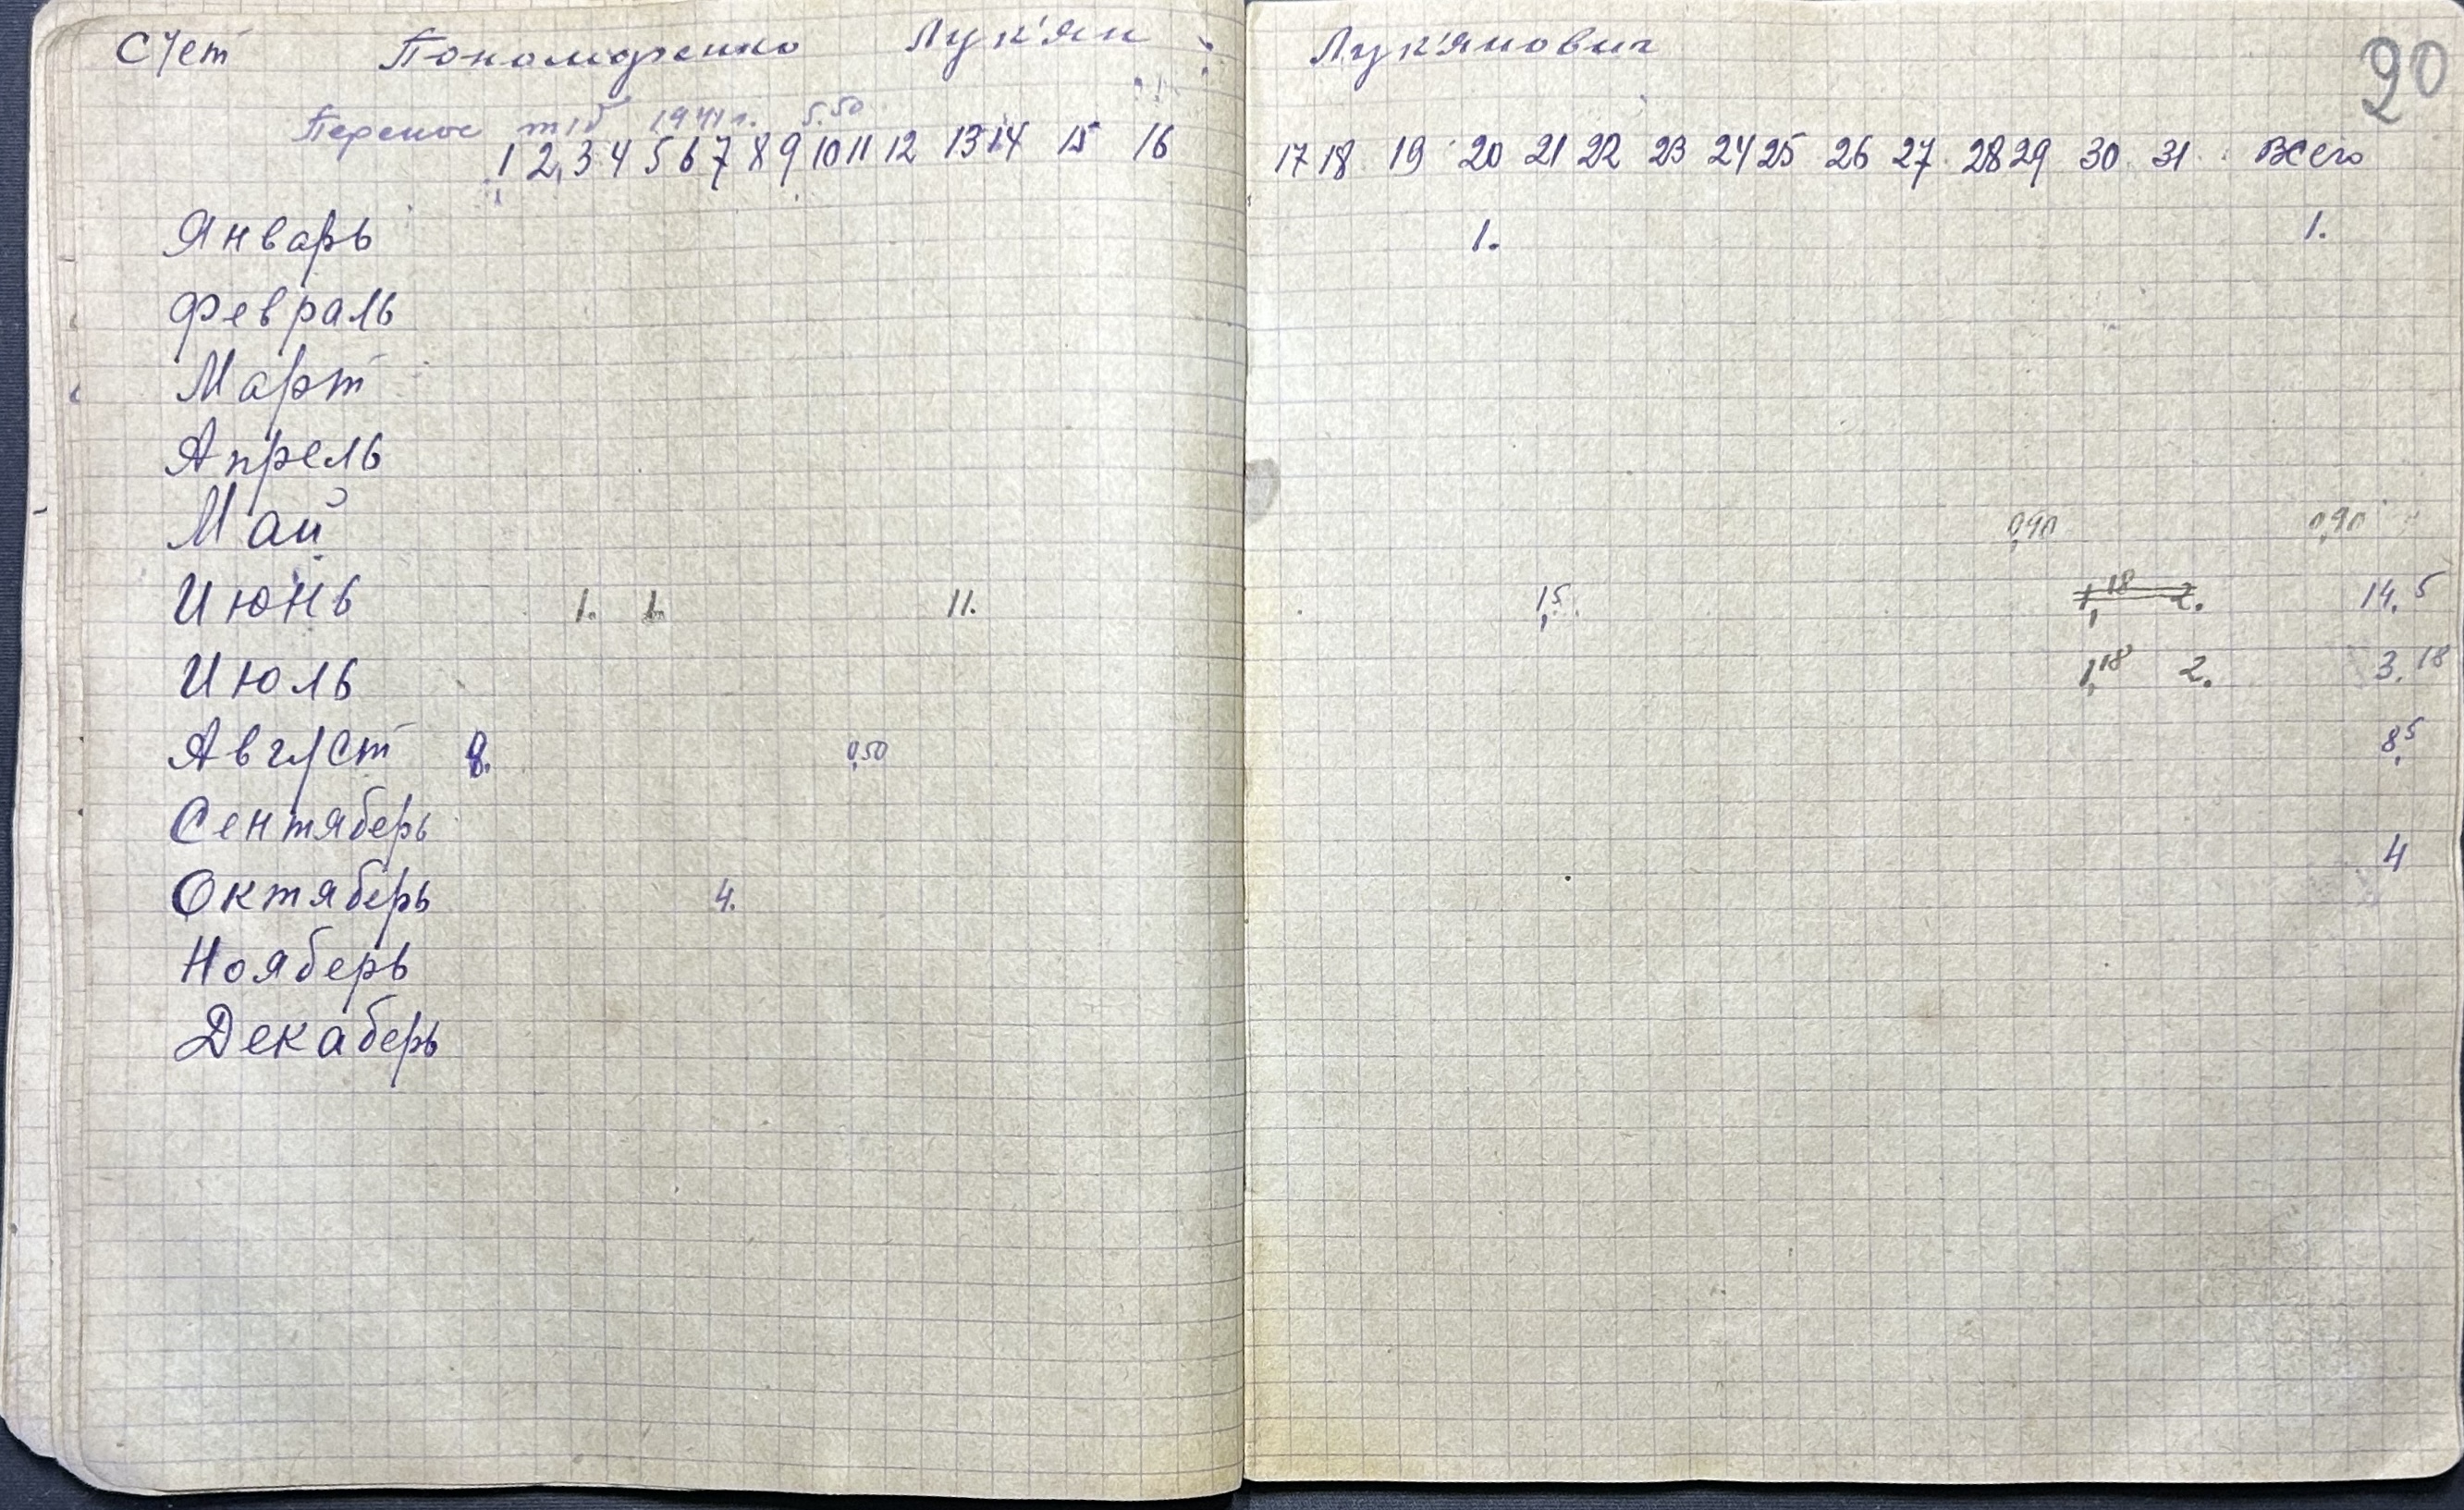 Счет Пономаренко Лук'ян Лук'янович 20
Перенос 1941 г. 5.50
1 2 3 4 5 6 7 8 9 10 11 12 13 14 15 16 17 18 19 20 21 22 23 24 25 26 27 28 29 30 31 всего
Январь 1. 1.
Февраль
Март
Апрель
Май 0,90 0,90
Июнь 1. 1. 11. 1,5 1,18 2. 14,5
Июль 1,18 2. 3,18
Август 8. 0,50 8,5
Сентяберь
Октяберь 4. 4
Нояберь
Декаберь